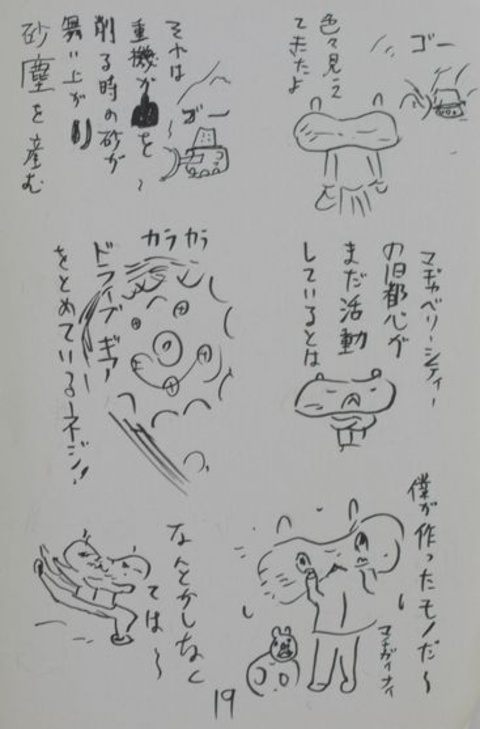 ゴー
色々見て
て来たよ
それは
重機が を〜
削る時の砂が
舞い上がり
砂塵を産む
ゴー
マギャベリーシティー
の旧都心が
まだ活動
しているとは
カラカラ
ドライブギアー
をとめているーネジ!
僕が作ったモノだ〜
マチガイナイ
なんとかしなく
ては〜
19